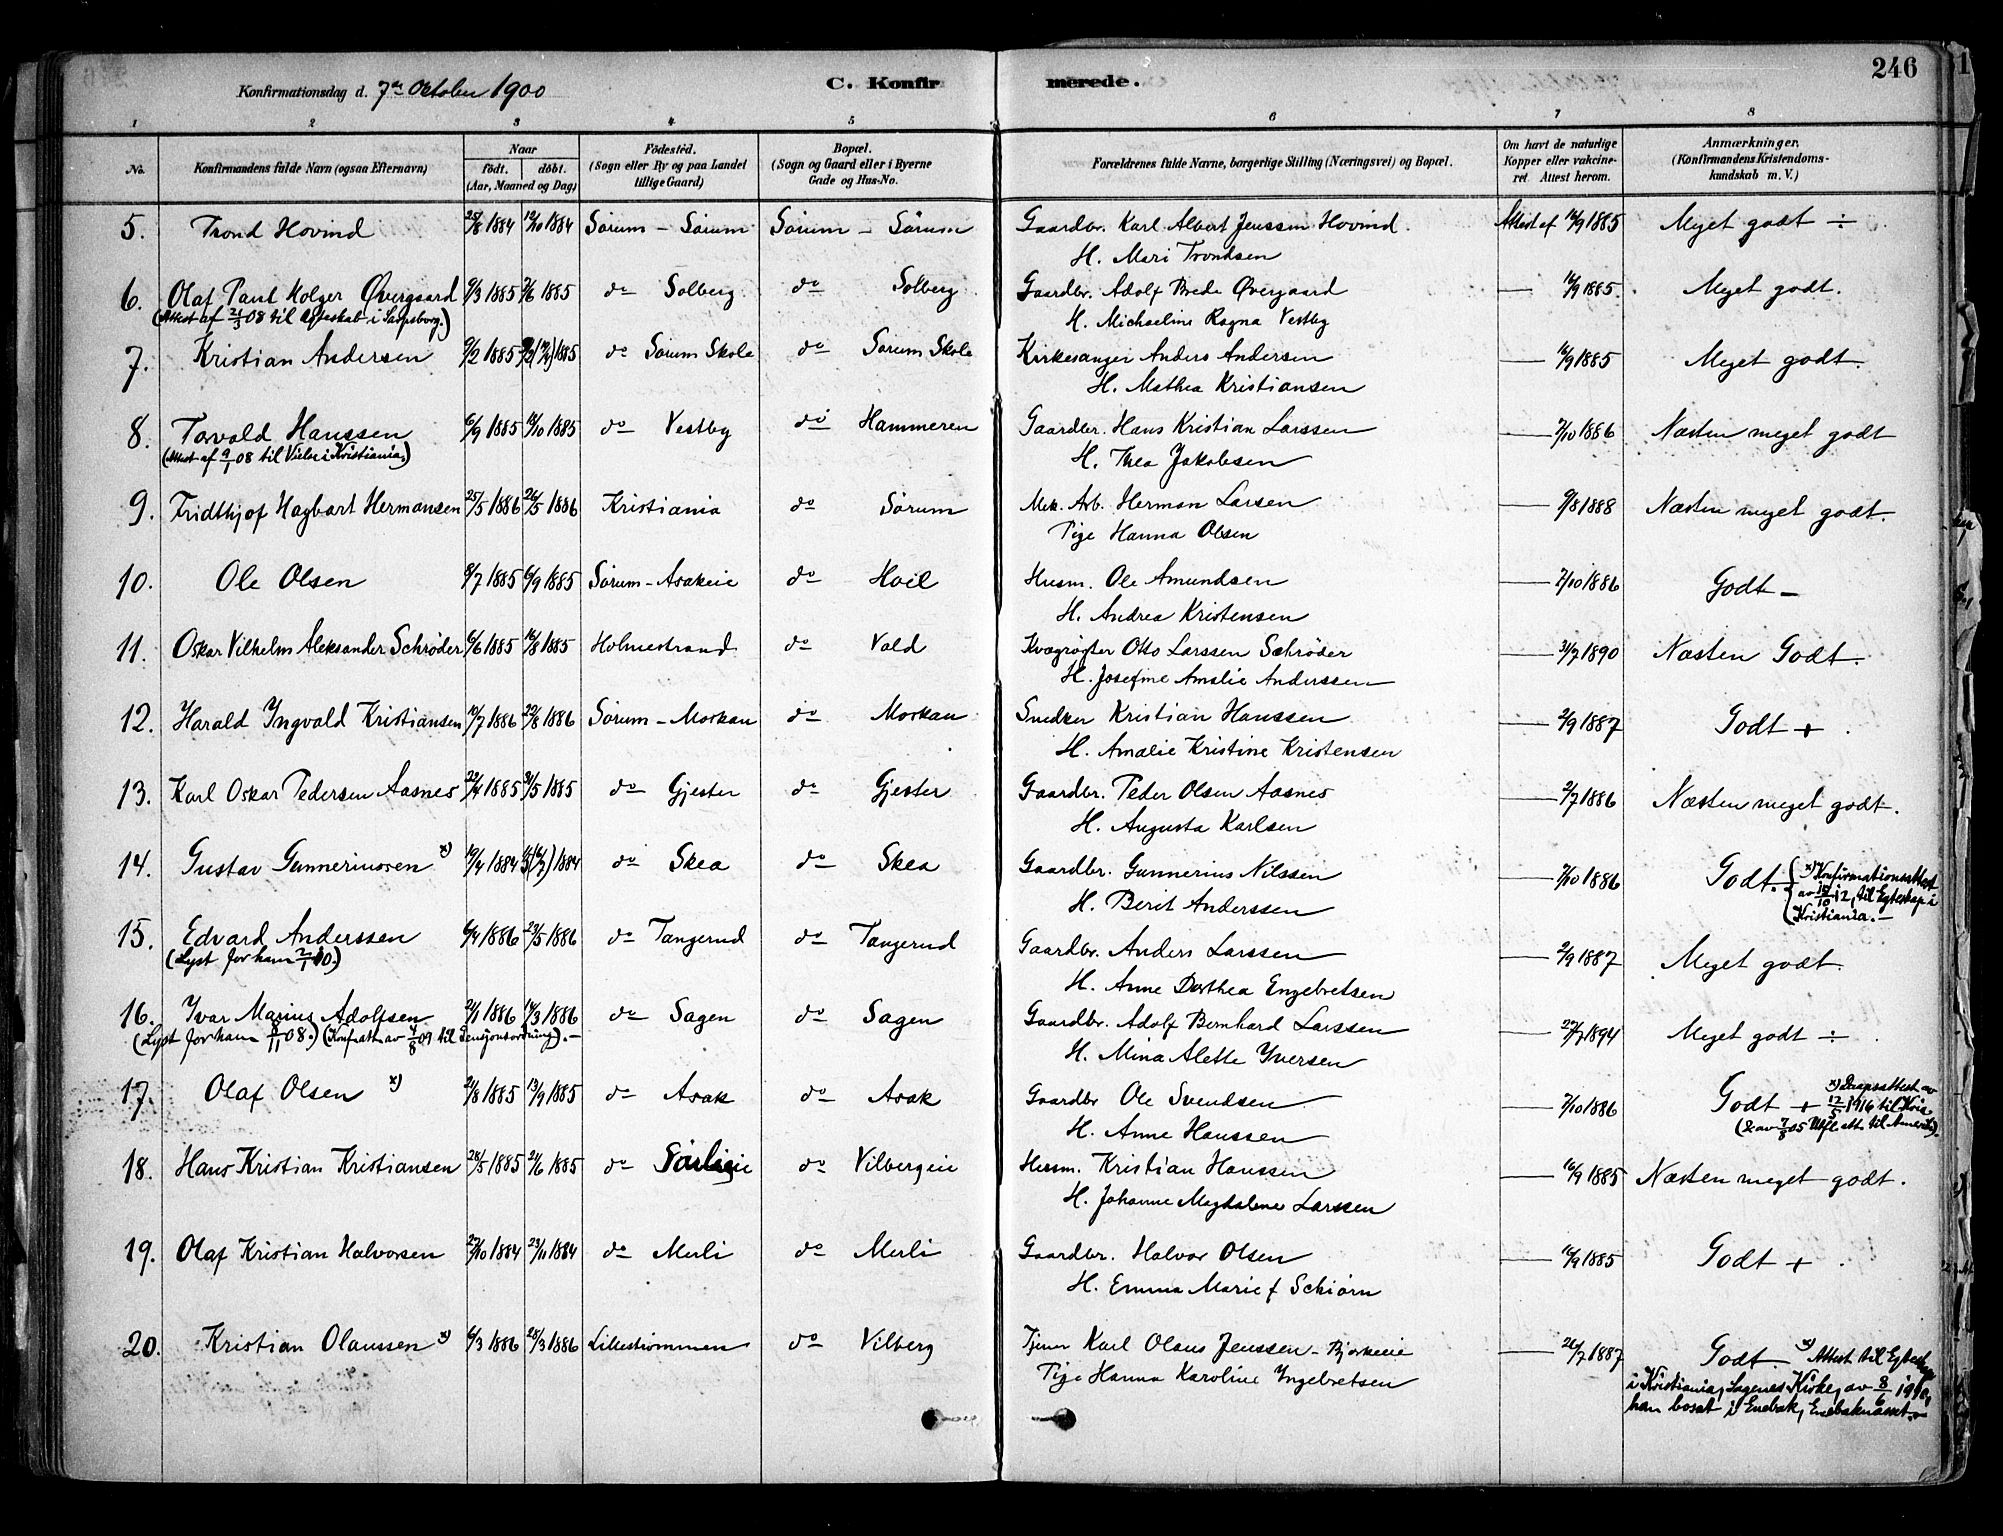 246
Konfirmationsdag d. 7de October 1900
C. Konfirmerede.
1 2 3 4 5 6 7 8
No.
Konfirmandens fulde Navn (ogsaa Efternavn)
Naar
født. døbt.
(Aar, Maaned og Dag)
Fødested.
(Sogn eller By og paa Landet
tillige Gaard)
Bopæl.
(Sogn og Gaard eller i Byerne
Gade og Hus-No.
Forældrenes fulde Navne, borgerlige Stilling (Næringsvei) og Bopæl.
Om havt de naturlige
Kopper eller vakcine-
ret Attest herom.
Anmærkninger.
(Konfirmandens Kristendoms-
kundskab m. V.)
5. Trond Hovind 25/8 1884 12/10 1884 Sørum - Sørum Sørum - Sørum Gaardbr. Karl Albert Jenssen Hovind. Attest af 16/9 1885 Meget godt ÷
H. Mari Trondsen
6. Olaf Paul Holger Øvergaard 9/3 1885 7/6 1885 do Solberg do Solberg Gaardbr. Adolf Brede Øvergaard — 16/9 1885. Meget godt.
(Attest af 21/3 08 til Egteskab i Sarpsborg.) H. Michaeline Ragna Vestby
7. Kristian Andersen 9/2 1885 1885 do Sørum Skole do Sørum Skole Kirkesanger Anders Andersen — 16/9 1885 Meget godt.
H. Mathea Kristiansen
8. Torvald Hanssen 6/9 1885 18/10 1885 do Vestby do Hammeren Gaardbr. Hans Kristian Larssen — 7/10 1886 Næsten meget godt
(Attest af 9/1 08 til Vielse i Kristiania.) H. Thea Jakobsen
9. Fridthjof Hagbart Hermansen 25/5 1886 26/5 1886 Kristiania do Sørum Mek. Arb. Herman Larsen — 9/8 1888 Næsten meget godt.
Pige Hanna Olsen
10. Ole Olsen 8/7 1885 6/9 1885 Sørum - Asakeie do Hvil Husm. Ole Amundsen — 7/10 1886 Godt -
H. Andrea Kristensen
11. Oskar Vilhelm Aleksander Schrøder 6/6 1885 16/8 1885 Holmestrand do Vald Kvægrøgter Otto Larssen Schrøder — 31/7 1890 Næsten Godt.
H. Josefine Amalie Anderssen
12. Harald Yngvald Kristiansen 10/7 1886 22/8 1886 Sørum - Morkau do Morkau Snedker Kristian Hanssen — 2/9 1887 Godt +
H. Amalie Kristine Kristensen
13. Karl Oskar Pedersen Aasnes 22/4 1885 31/5 1885 do Gjester do Gjester Gaardbr. Peder Olsen Aasnes — 2/7 1886 Næsten meget godt.
H. Augusta Karlsen
14. Gustav Gunneriusen x) 19/4 1884 1884 do Skea do Skea Gaardbr. Gunnerius Nilssen — 7/10 1886 Godt. x) Konfirmationsattest
av 15/10 12, til Egteskap i
Kristiania. -
H. Berit Anderssen
15. Edvard Anderssen 6/4 1886 23/5 1886 do Tangerud do Tangerud Gaardbr. Anders Larssen — 2/9 1887 Meget godt.
(Lyst for ham 2/1 10.) H. Anne Dorthea Engebretsen
16. Ivar Marius Adolfsen 21/1 1886 14/3 1886 do Sagen do Sagen Gaardbr. Adolf Bernhard Larssen — 27/7 1894 Meget godt ÷
(Lyst for ham 8/11 08.) (Konf.att. av 4/8 09 til Pensjonsordning). - H. Mina Alette Yversen
17. Olaf Olsen x) 21/8 1885 13/9 1885 do Asak do Asak Gaardbr Ole Svendsen — 7/10 1886 Godt + x) Daapsattest av
12/5 1916 til Kria
(& av 7/8 05 Utfl. att. til Amerika).
H. Anne Hanssen
18. Hans Kristian Kristiansen 28/5 1885 21/6 1885 do Sørlieie do Vilbergeie Husm. Kristian Hanssen — 16/9 1885 Næsten meget godt.
H. Johanne Magdalene Larssen
19. Olaf Kristian Halvorsen 27/10 1884 23/11 1884 do Merli do Merli Gaardbr. Halvor Olsen — 16/9 1885 Godt +
H. Emma Marie f Schiørn
20. Kristian Olaussen x) 6/3 1886 28/3 1886 Lillestrømmen do Vilberg Tjener Karl Olaus Jenssen - Bjørkeeie — 26/7 1887 Godt - x) Attest til Egteskap
Pige Hanna Karoline Yngebretsen
i Kristiania, Sagenes Kirke, av 8/6 1910,
han bosat i Enebak, Enebaknesset. -